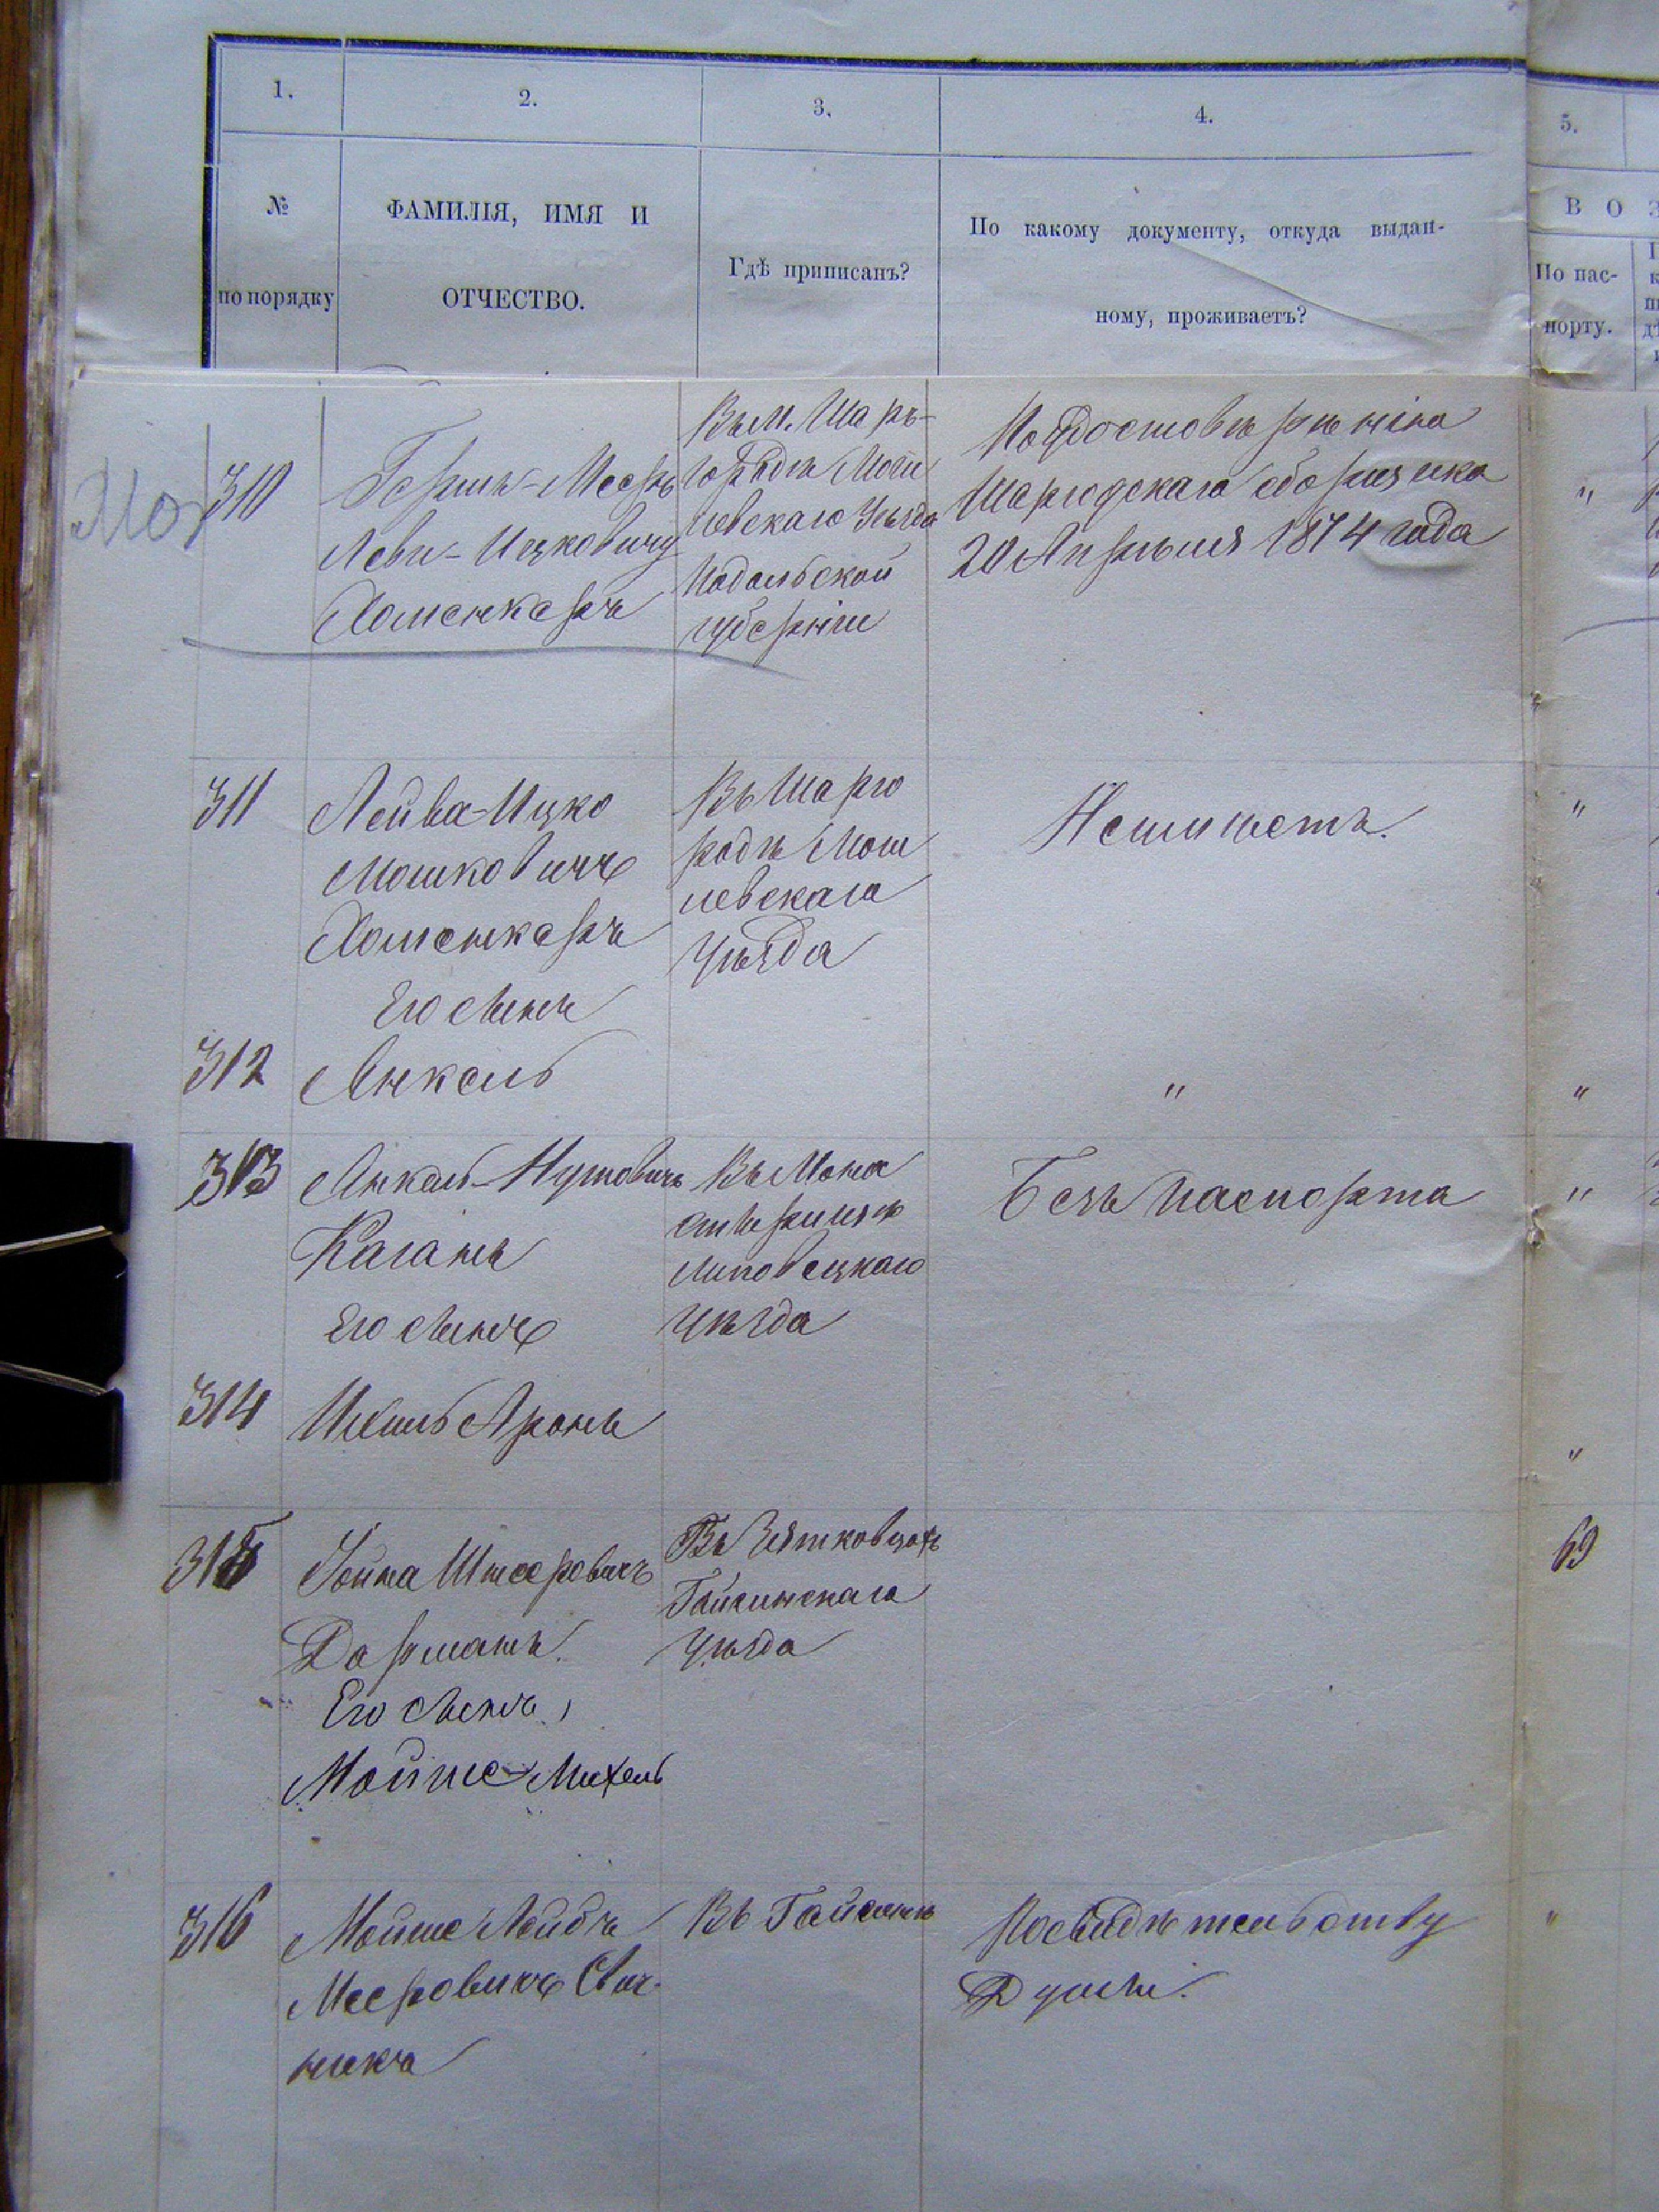 1.
2.
3.
4.
5.
№
по порядку
ФАМИЛІЯ, ИМЯ И
ОТЧЕСТВО.
Гдѣ приписанъ?
По какому документу, откуда выдан-
ному, проживаетъ?
В О З
По пас-
порту.
310
Гершъ-Мееръ
Леви-Ицковичъ
Хоменкеръ
Въ м. Шар-
городѣ Моги
левскаго Уѣзда
Подольской
губерніи
По удостовѣренію
Шаргодскаго сборщика
20 Апрѣля 1874 года
"
311
Лейба-Ицко
Мошковичъ
Хоменкеръ
Въ Шарго
родѣ Моги
левскаго
уѣзда
Неимѣетъ.
"
Его сынъ
312
Янкель
"
"
313
Янкель-Нутовичъ
Каганъ
Въ Мона
стырищѣ
Липовецкаго
уѣзда
Безъ паспорта
"
Его сынъ
314
Аронъ
"
315
Дорманъ.
Его сынъ
Мойше-Михель
Гайсинскаго
уѣзда
69
316
Мойше Лейбъ
Мееровичъ
Въ Гайсинѣ
По свидѣтельству
"